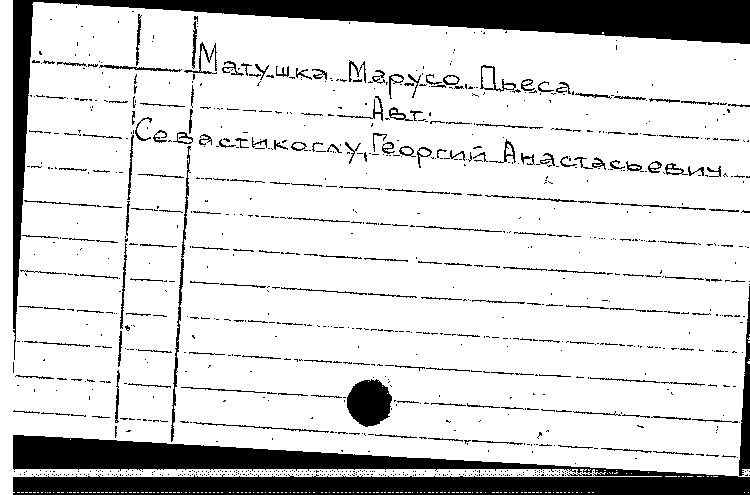 Матушка Марусо. Пьеса
Авт.:
Севастикоглу, Георгий Анастасьевич.